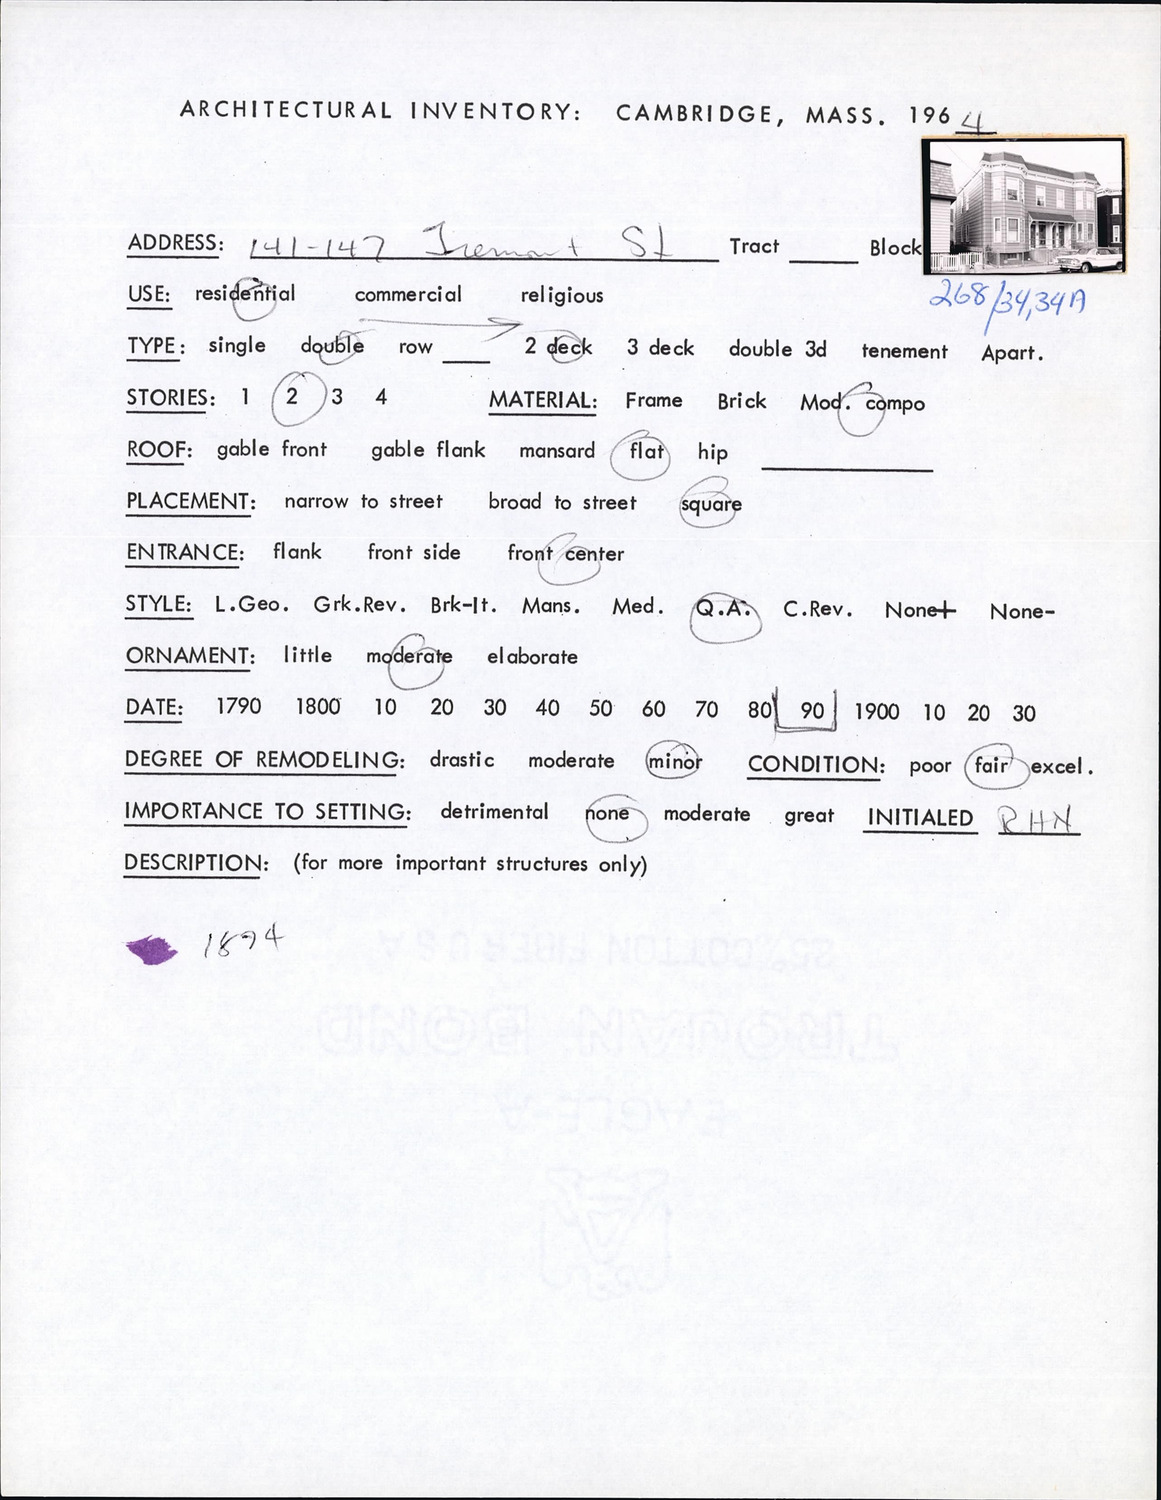 ARCHITECTURAL INVENTORY: CAMBRIDGE, MASS. 1964
ADDRESS: 141-147 Tremont St Tract ____ Block
268/34,34A
USE: residential commercial religious
TYPE: single double row ____ 2 deck 3 deck double 3d tenement Apart.
STORIES: 1 2 3 4 MATERIAL: Frame Brick Mod. compo
ROOF: gable front gable flank mansard flat hip ____
PLACEMENT: narrow to street broad to street square
ENTRANCE: flank front side front center
STYLE: L.Geo. Grk.Rev. Brk-It. Mans. Med. Q.A. C.Rev. None+ None-
ORNAMENT: little moderate elaborate
DATE: 1790 1800 10 20 30 40 50 60 70 80 90 1900 10 20 30
DEGREE OF REMODELING: drastic moderate minor CONDITION: poor fair excel.
IMPORTANCE TO SETTING: detrimental none moderate great INITIALED RHN
DESCRIPTION: (for more important structures only)
1894
25% COTTON FIBER USA
TROJAN BOND
EAGLE-A